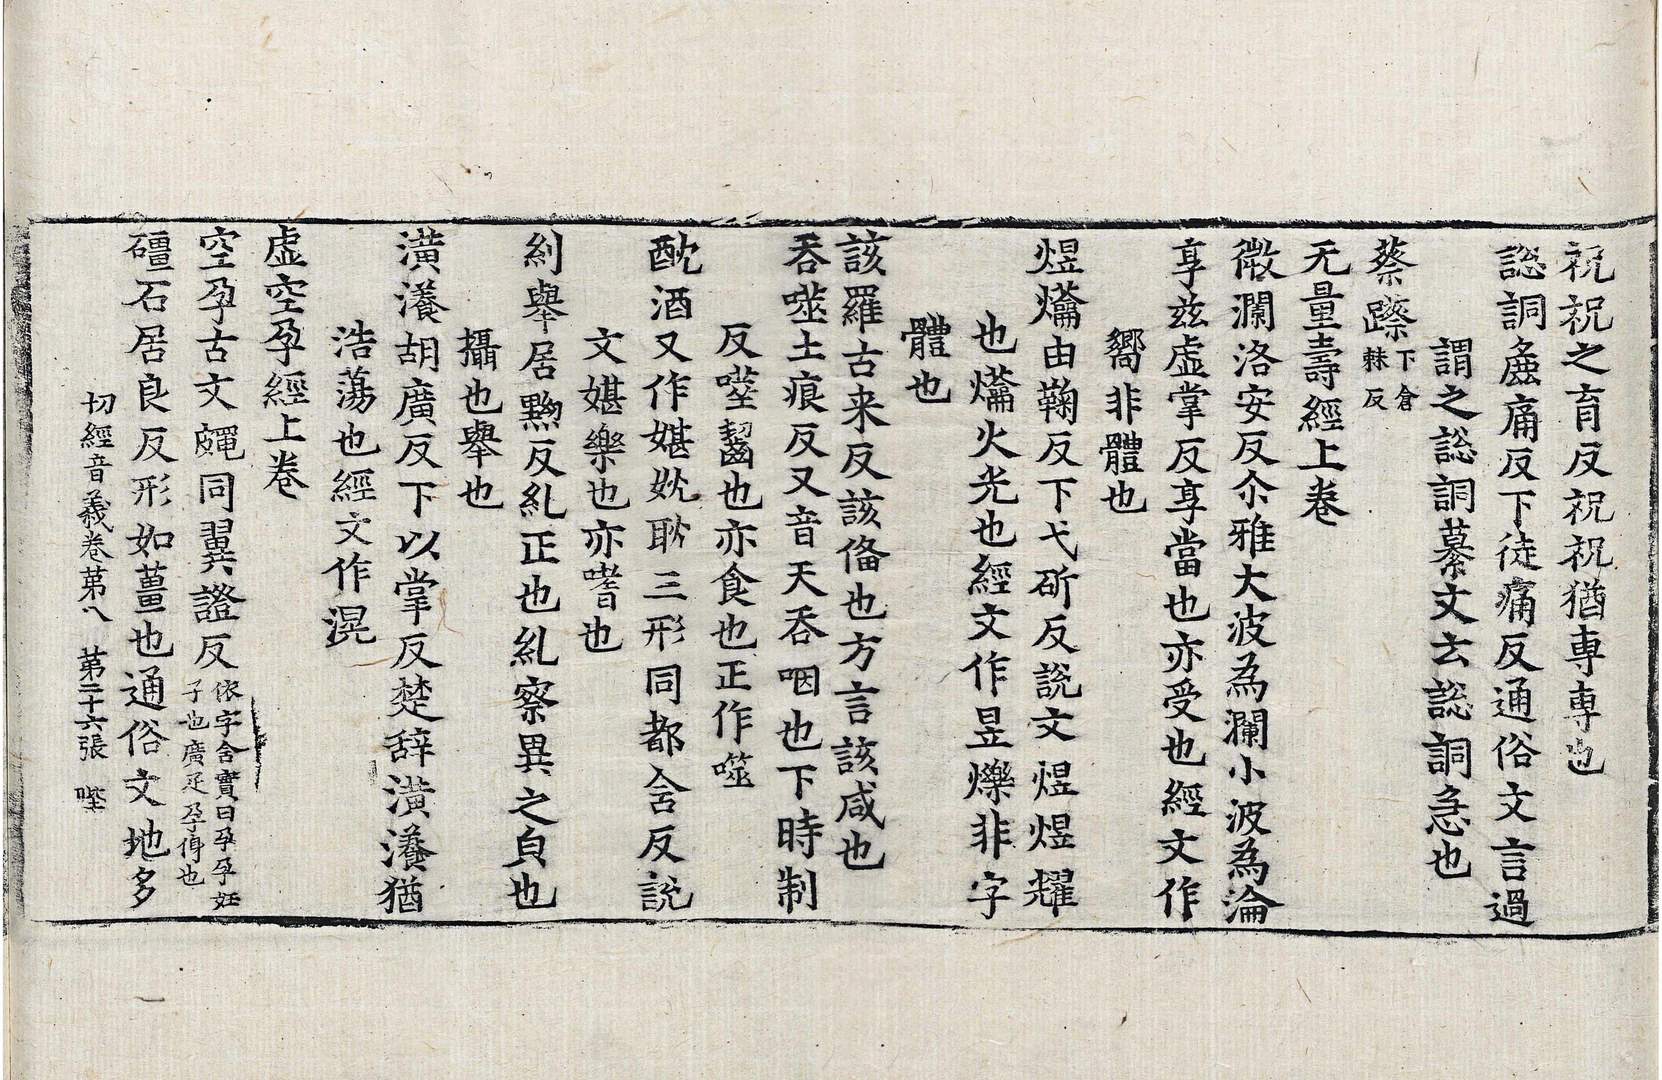 祝祝之育反祝祝猶專專也
謥詷麁痛反下徒痛反通俗文言過
謂之謥詷纂文云謥詷急也
蔡𨅖下倉棘反
无量壽經上卷
微瀾洛安反尒雅大波為瀾小波為淪
享兹虚掌反享當也亦受也經文作
嚮非體也
煜爚由鞠反下弋斫反說文煜煜耀
也爚火光也經文作昱爍非字
體也
該羅古来反該俻也方言該咸也
吞噬土痕反又音天吞咽也下時制
反噬齧也亦食也正作噬
酖酒又作媅妉耽三形同都含反說
文媅樂也亦嗜也
糺舉居黝反糺正也糺察異之皃也
攝也舉也
潢瀁胡廣反下以掌反楚辞潢瀁猶
浩蕩也經文作滉
虚空孕經上卷
空孕古文𦣕同翼證反依字含實曰孕孕妊子也廣疋孕㑗也
礓石居良反形如薑也通俗文地多
切經音義卷苐八　苐二十六張　𡎺